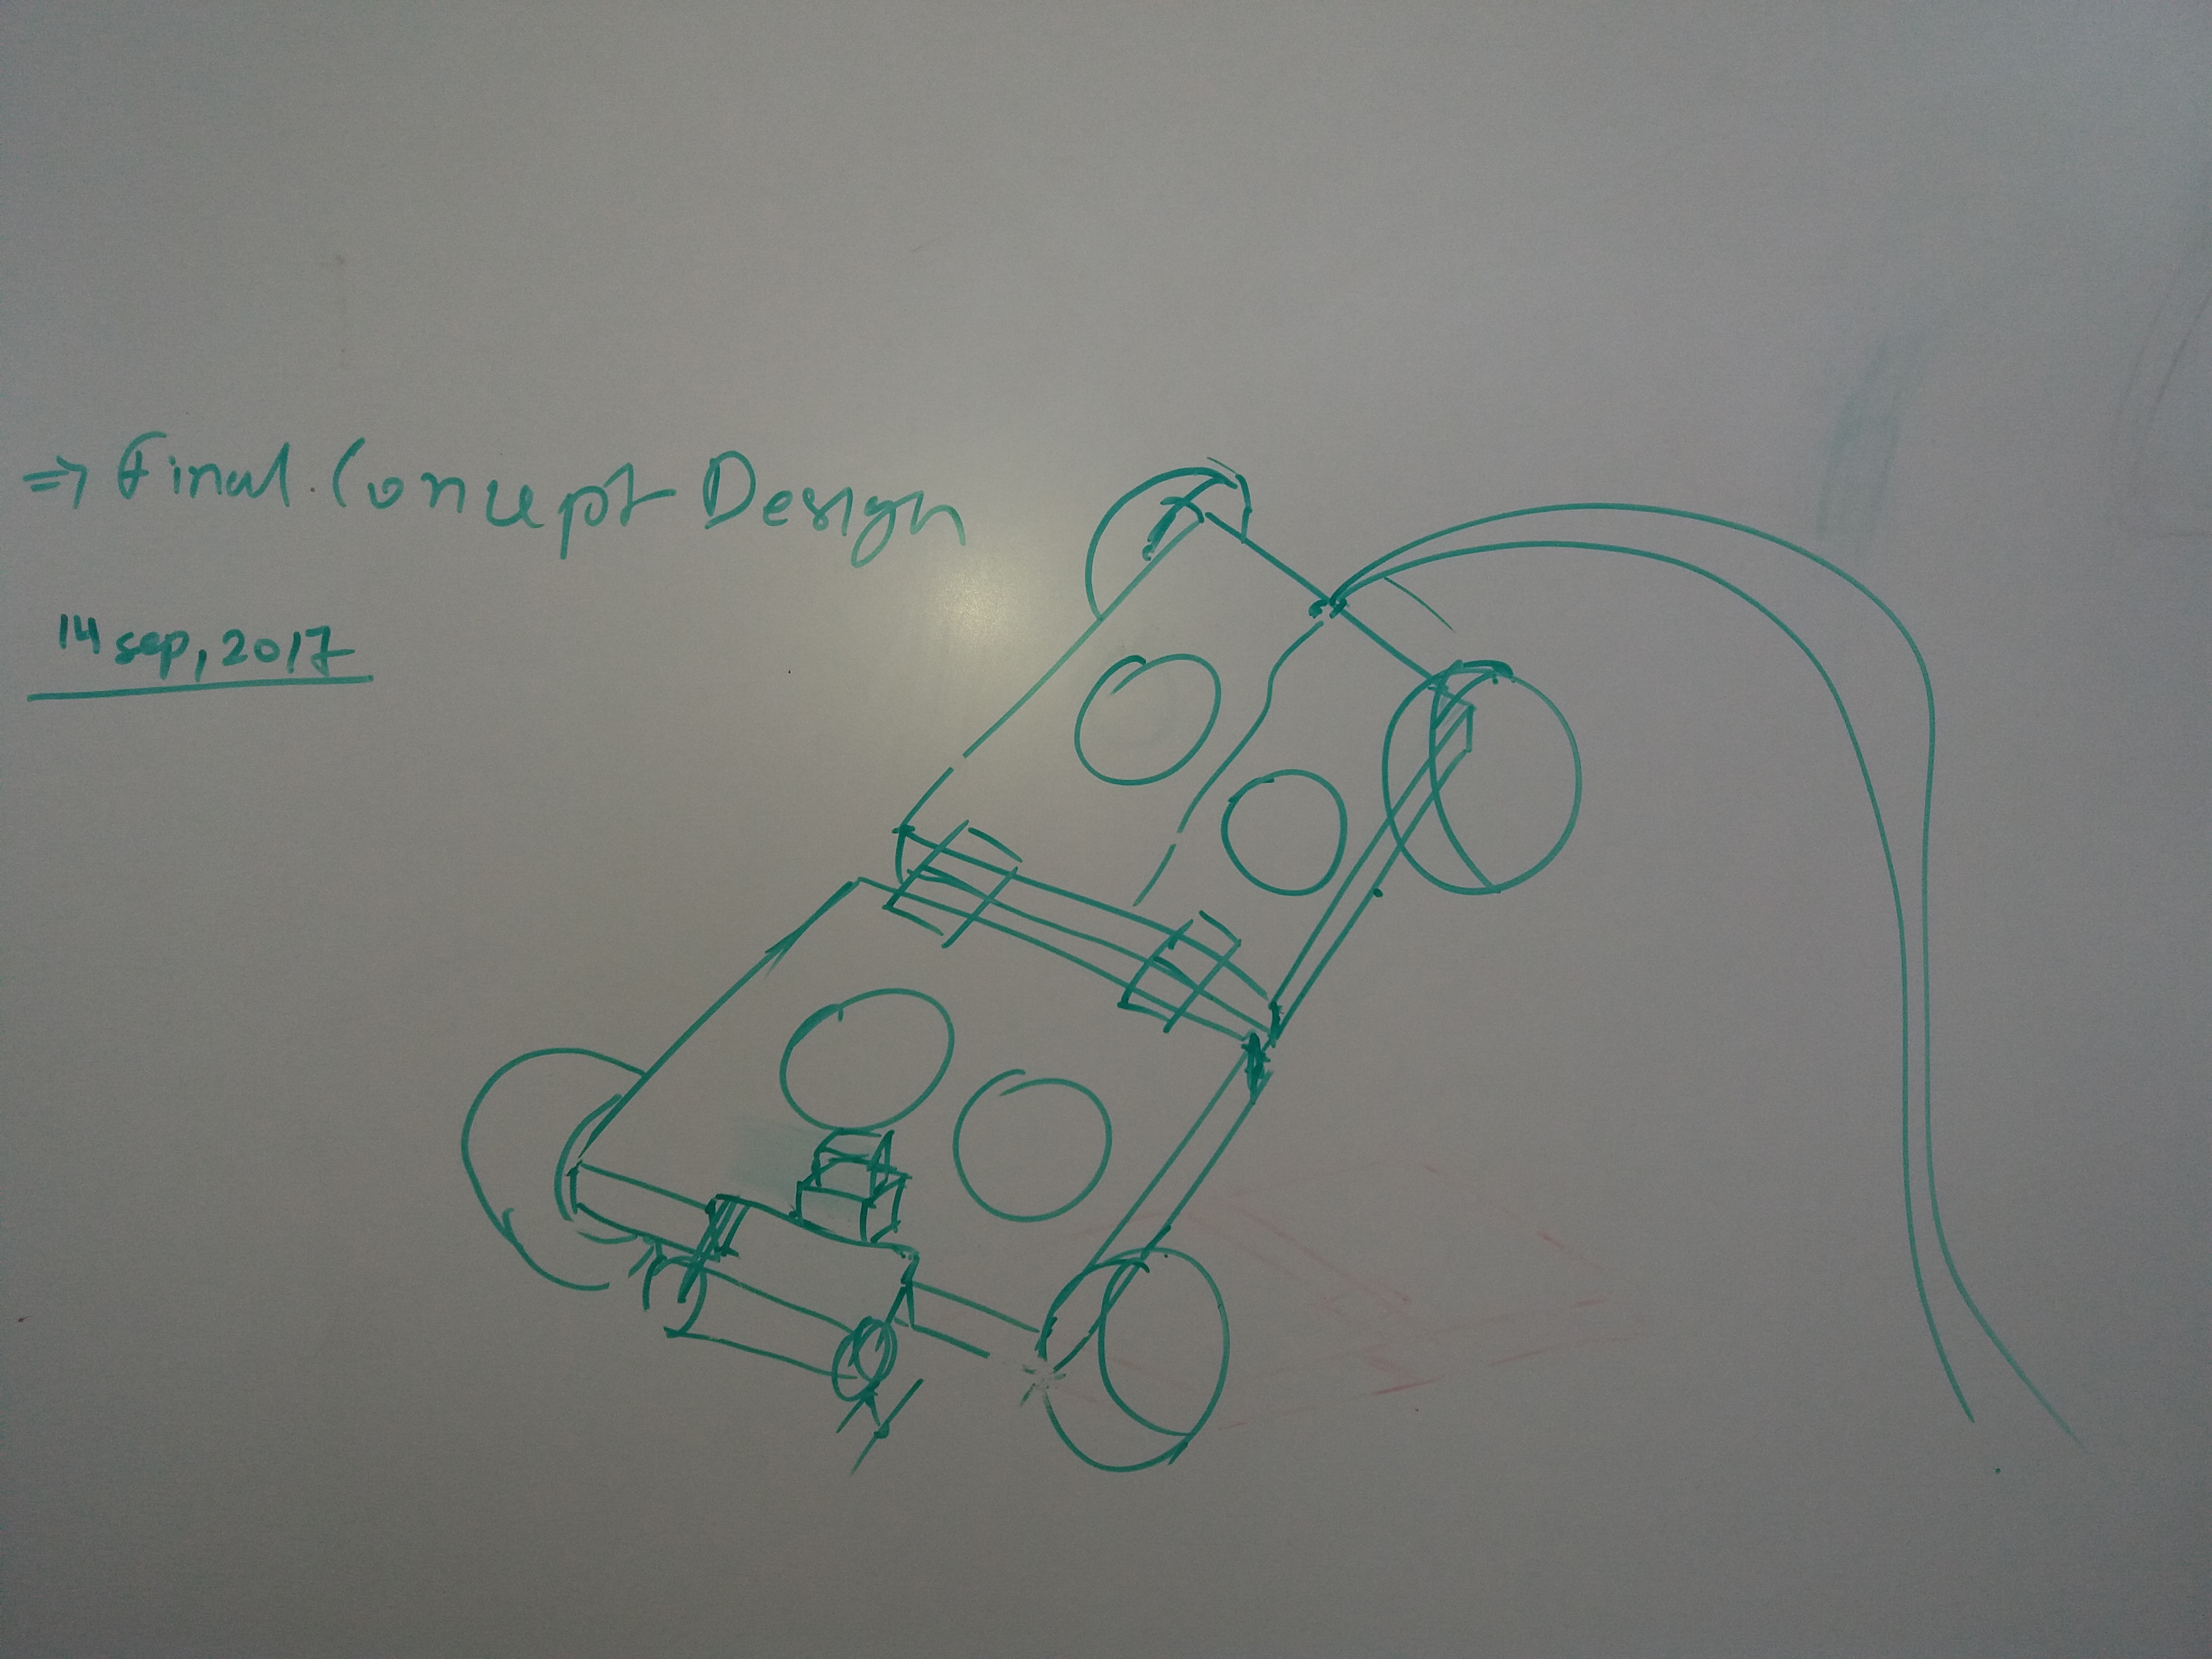 ⇒ Final Concept Design
14 sep, 2017